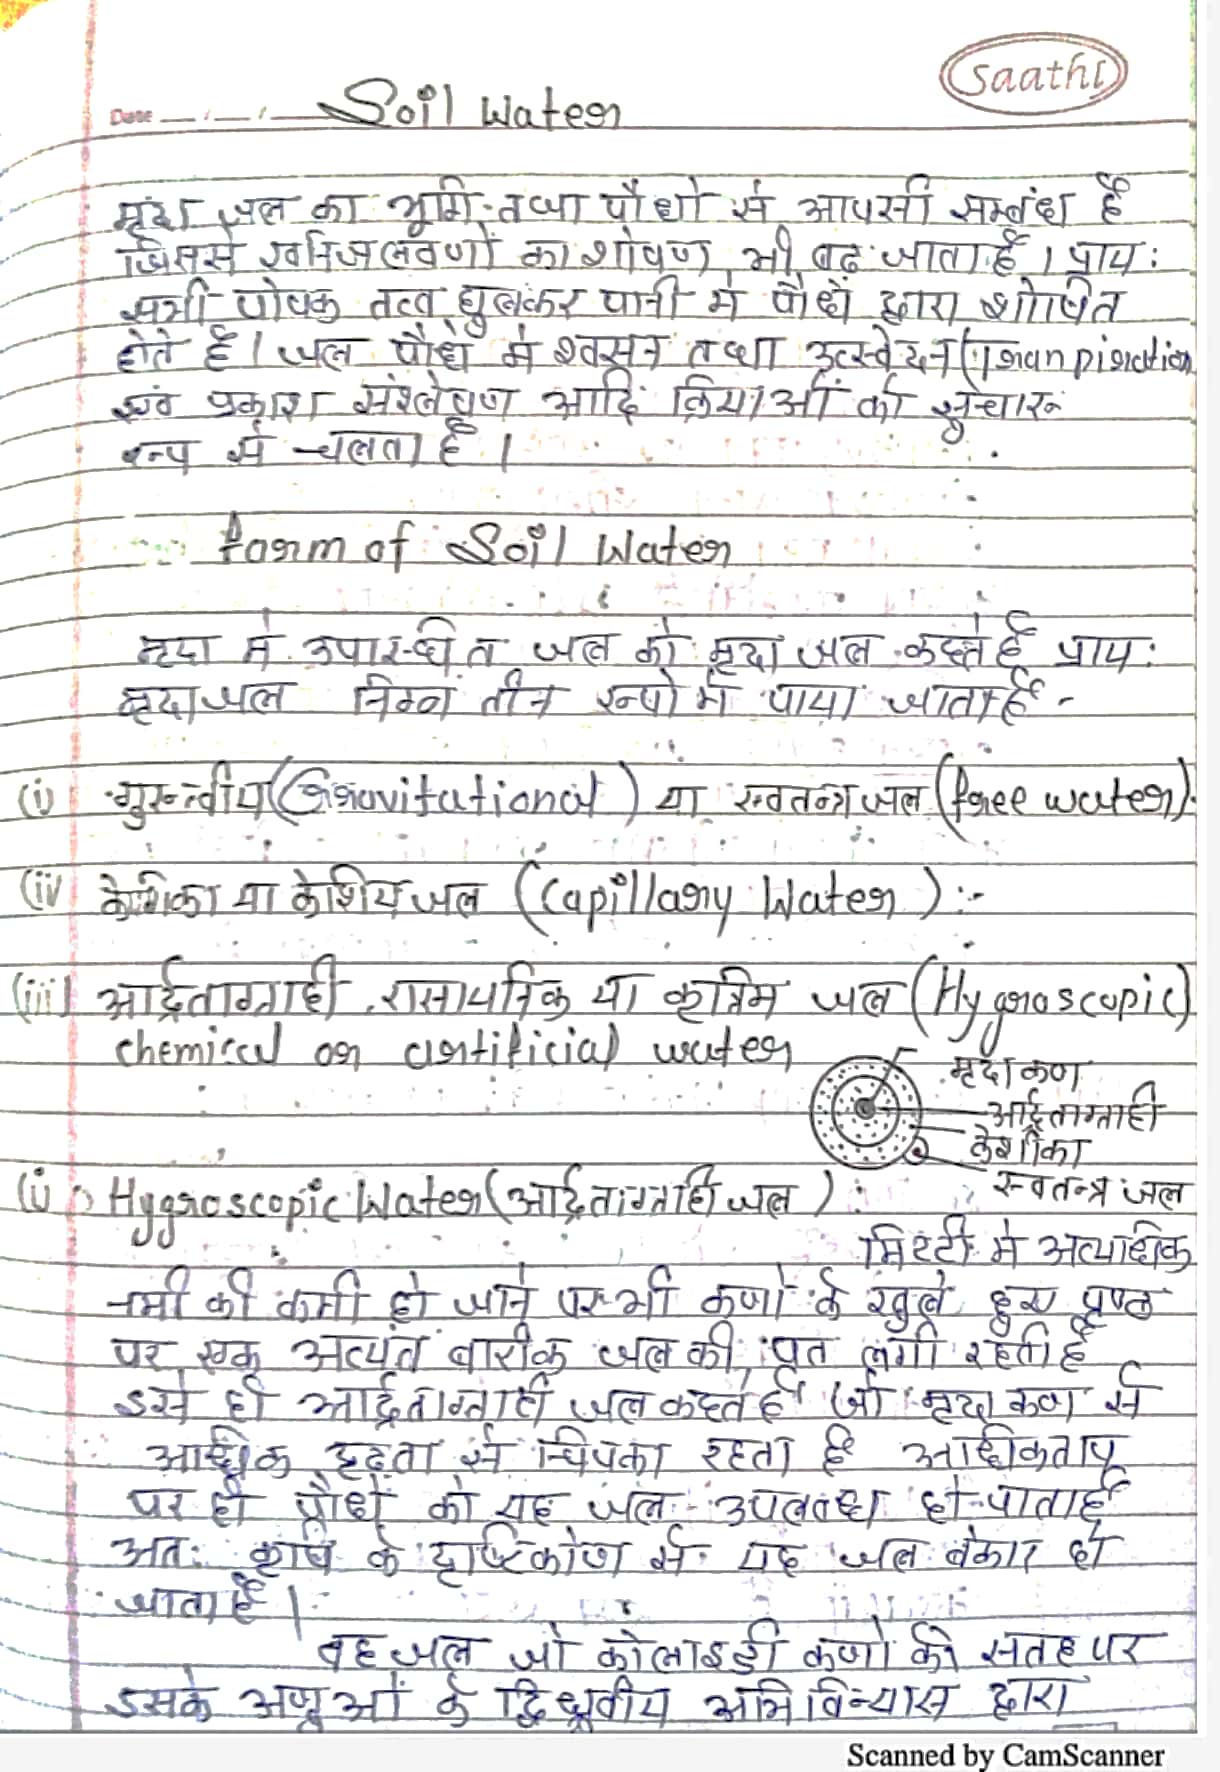 Saathi
Date __/__/__ Soil Water
मृदा जल का भूमि तथा पौधों से आपसी सम्बंध है
जिससे खनिजलवणों का शोषण भी बढ जाता है । प्रायः
सभी पोषक तत्व घुलकर पानी में पौधों द्वारा शोषित
होते है । जल पौधे में श्वसन तथा उत्स्वेदन (Transpiration
एवं प्रकाश संश्लेषण आदि क्रियाओं को सुचारू
रूप से चलता है ।
Form of Soil Water
मृदा में उपारस्थित जल को मृदा जल कहते है प्रायः
मृदा जल निम्न तीन रूपो में पाया जाता है -
(i) गुरुत्वीय (Gravitational) या स्वतन्त्र जल (free water).
(ii) केशिका या केशिय जल (Capillary Water) :-
(iii) आर्द्रताग्राही रासायनिक या कृत्रिम जल (Hygroscopic)
chemical or artificial water
मृदा कण
आर्द्रताग्राही
केशीका
स्वतन्त्र जल
(i) Hygroscopic Water (आर्द्रताग्राही जल) :
मिट्टी में अत्याधिक
नमी की कमी हो जाने पर भी कणों के खुले हुए पृष्ठ
पर एक अत्यंत बारीक जल की पृत लगी रहती है
इसे ही आर्द्रताग्राही जल कहते है जो मृदा कण से
आधिक दृढ़ता से चिपका रहता है आधीकताप
पर ही पौधों को यह जल उपलब्ध हो पाता है
अतः कृषि के दृष्टिकोण से यह जल बेकार हो
जाता है ।
वह जल जो कोलाइडी कणों की सतह पर
इसके अणुओं के द्विध्रुवीय अभिविन्यास द्वारा
Scanned by CamScanner